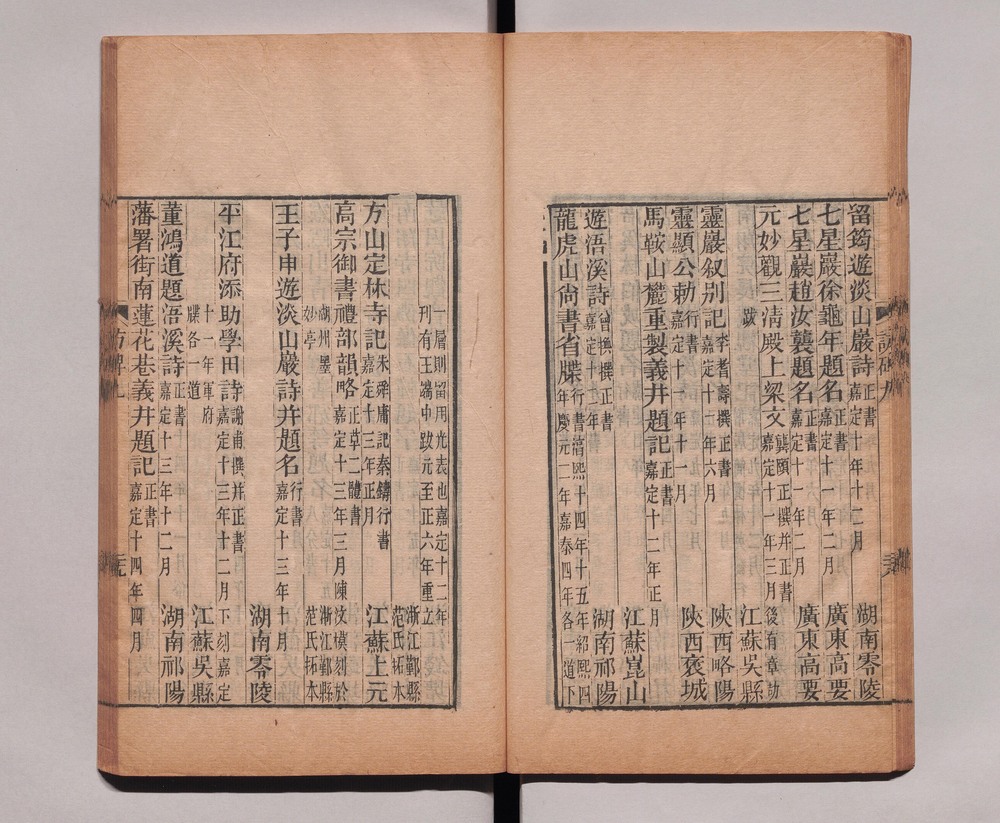 留筠遊淡山巖詩正書嘉定十年十二月 湖南零陵
七星巖徐龜年題名正書嘉定十一年二月 廣東高要
七星巖趙汝襲題名正書嘉定十一年二月 廣東高要
元妙觀三清殿上梁文龔頤正撰并正書嘉定十一年三月後有章
跋 江蘇吳縣
靈巖叙别記李耆壽撰正書嘉定十二年六月 陝西略陽
靈顯公勅行書嘉定十一年十一月 陝西褒城
馬鞍山麓重製義井題記正書嘉定十二年正月
江蘇崑山
遊浯溪詩曾撰正書嘉定十二年 湖南祁陽
龍虎山尚書省牒行書淳熙十四年十五年紹熙四年慶元二年嘉泰四年各一道下
一層則留用光表也嘉定十二年浙江鄞縣
刊有王鵷中跋元至正六年重立范氏拓本
方山定林寺記朱舜庸記秦鑄行書嘉定十三年正月 江蘇上元
高宗御書禮部韻略正草二體書嘉定十三年三月陳汶模刻於浙江鄞縣
湖州墨妙亭 范氏拓本
王子申遊淡山巖詩并題名行書嘉定十三年十月
湖南零陵
平江府添助學田詩謝甫撰并正書嘉定十三年十二月下刻嘉定
十一年軍府牒各一道 江蘇吳縣
董鴻道題浯溪詩正書嘉定十三年十二月 湖南祁陽
藩署街南蓮花巷義井題記正書嘉定十四年四月